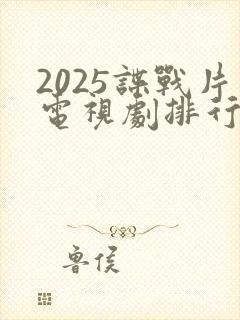 2025諜戰片
電視劇排行
魯侯